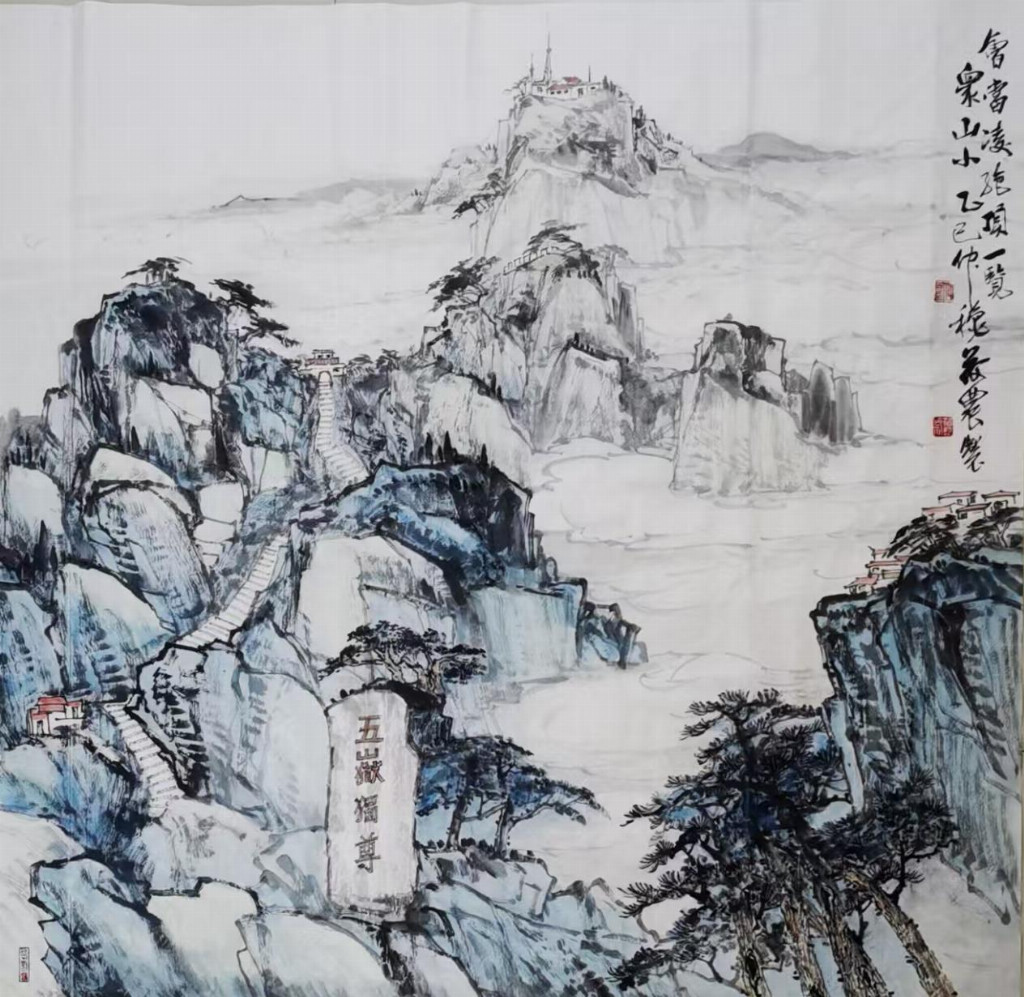 會當凌絶頂一覽
衆山小乙巳仲穐農製
五嶽獨尊